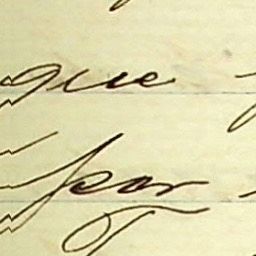 que
por